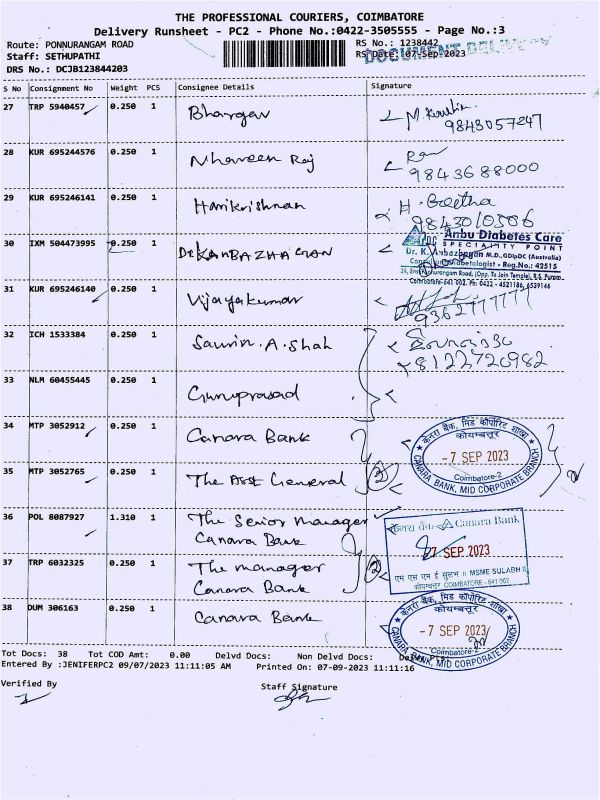 THE PROFESSIONAL COURIERS, COIMBATORE
Delivery Runsheet - PC2 - Phone No.:0422-3505555 - Page No.:3
Route: PONNURANGAM ROAD
RS No.: 1238442
DOCUMENT DELIVERY
Staff: SETHUPATHI
RS Date: 07-Sep-2023
DRS No.: DCJB123844203
S No Consignment No Weight PCS Consignee Details Signature
27 TRP 5940457 0.250 1 Bhargav
9843057247
28 KUR 695244576 0.250 1 Nhaveen Raj
9843688000
29 KUR 695246141 0.250 1 Harikrishnan H. Geetha
9843010506
30 IXM 504473995 0.250 1 Dr KANBAZHAGAN
Anbu Diabetes Care
SPECIALITY POINT
Dr. K. Anbazhagan M.D., GDipDC (Australia)
Consultant Diabetologist - Reg.No.: 42515
39, Ponnurangam Road, (Opp. To Jain Temple), R.S. Puram,
Coimbatore-641 002. Ph: 0422 - 4521186, 6539146
31 KUR 695246140 0.250 1 Vijayakumar
9362777777
32 ICH 1533384 0.250 1 Saurin. A. Shah
8122720982
33 NLM 60455445 0.250 1 Guruprasad
34 MTP 3052912 0.250 1 Canara Bank
केनरा बैंक, मिड कॉर्पोरेट शाखा
कोयम्बत्तूर
- 7 SEP 2023
Coimbatore-2
CANARA BANK, MID CORPORATE BRANCH
35 MTP 3052765 0.250 1 The Asst General
36 POL 8087927 1.310 1 The Senior Manager
Canara Bank
केनरा बैंक Canara Bank
27 SEP 2023
एम एस एम ई सुलभ || MSME SULABH
कोयम्बत्तूर COIMBATORE - 641 002
37 TRP 6032325 0.250 1 The manager
Canara Bank
38 DUM 306163 0.250 1 Canara Bank
केनरा बैंक, मिड कॉर्पोरेट शाखा
कोयम्बत्तूर
- 7 SEP 2023
Coimbatore-2
CANARA BANK, MID CORPORATE BRANCH
Tot Docs: 38 Tot COD Amt: 0.00 Delvd Docs: Non Delvd Docs:
Entered By :JENIFERPC2 09/07/2023 11:11:05 AM Printed On: 07-09-2023 11:11:16
Verified By Staff Signature